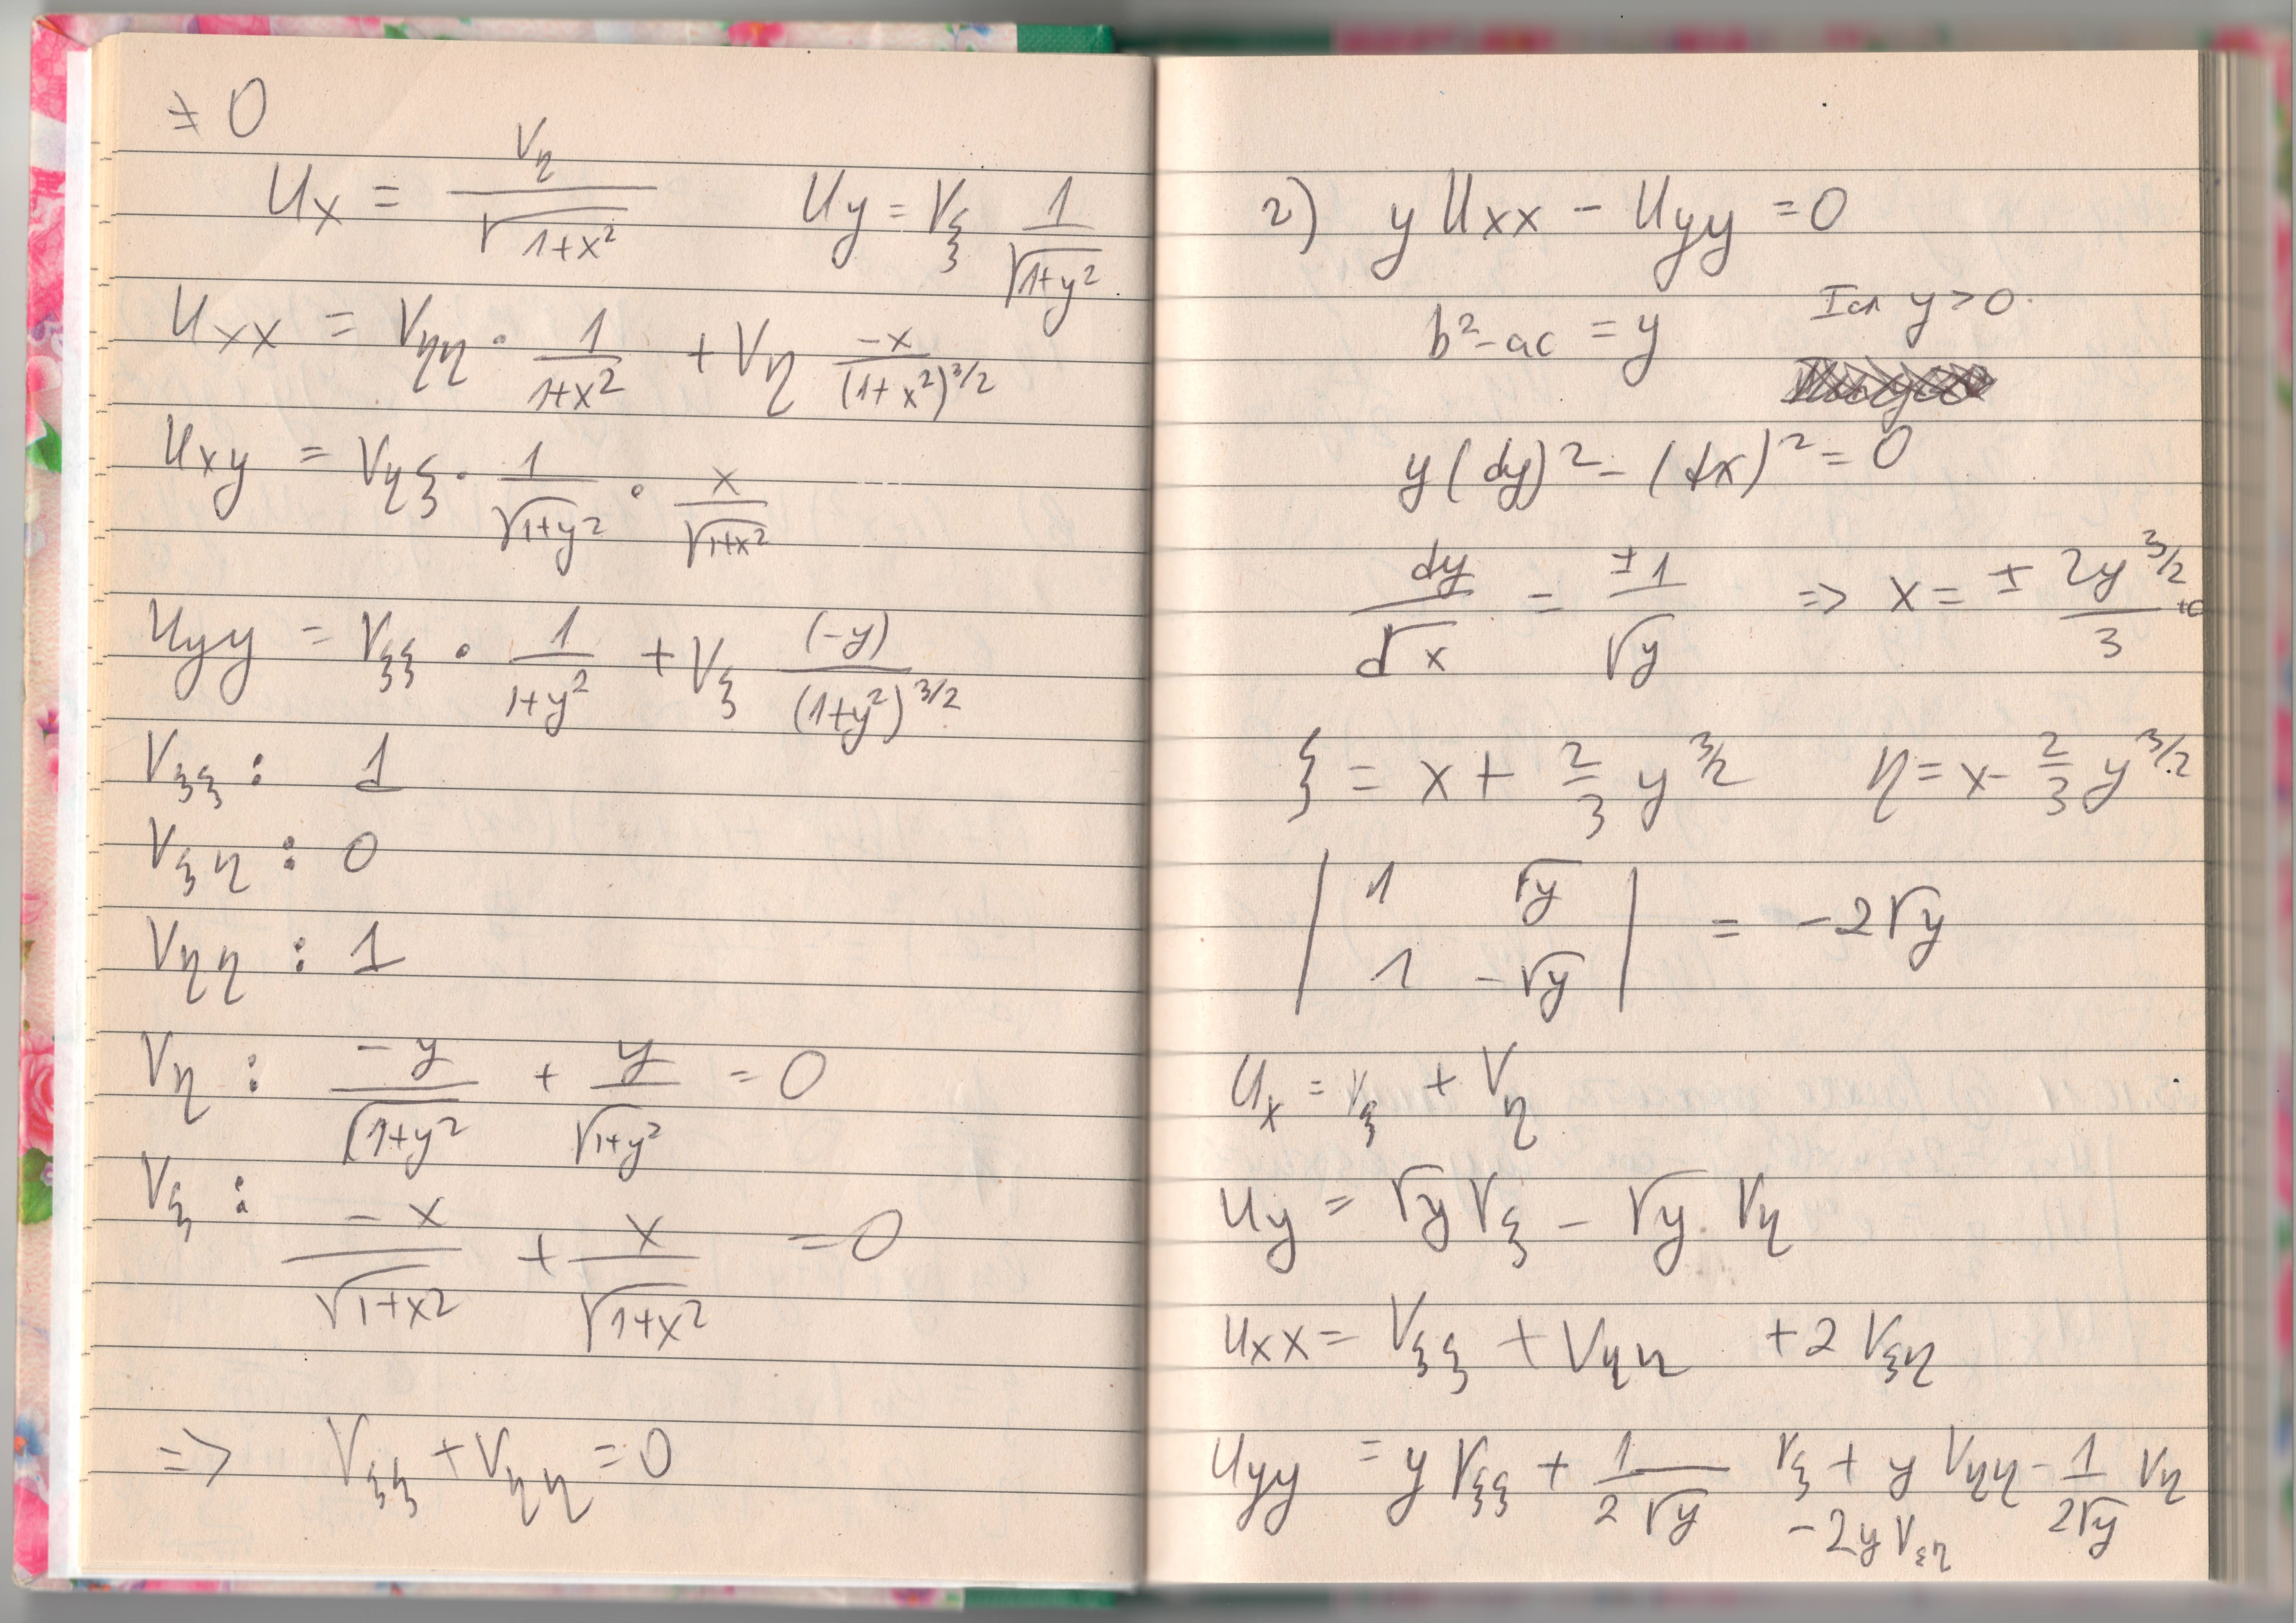 ≠ 0
Ux = Vη / √(1+x²)   Uy = Vξ 1/√(1+y²)
Uxx = Vηη · 1/(1+x²) + Vη (-x)/(1+x²)^(3/2)
Uxy = Vηξ · 1/√(1+y²) · x/√(1+x²)
Uyy = Vξξ · 1/(1+y²) + Vξ (-y)/(1+y²)^(3/2)
Vξξ : 1
Vξη : 0
Vηη : 1
Vη : -y/√(1+y²) + y/√(1+y²) = 0
Vξ : -x/√(1+x²) + x/√(1+x²) = 0
=> Vξξ + Vηη = 0
2) y Uxx - Uyy = 0
b² - ac = y   y > 0
y(dy)² - (dx)² = 0
dy/dx = ±1/√y => x = ± 2y^(3/2)/3 + c
ξ = x + 2/3 y^(3/2)   η = x - 2/3 y^(3/2)
| 1   √y |
| 1   -√y | = -2√y
Ux = Vξ + Vη
Uy = √y Vξ - √y · Vη
Uxx = Vξξ + Vηη + 2 Vξη
Uyy = y Vξξ + 1/(2√y) Vξ + y Vηη - 1/(2√y) Vη
- 2y Vξη